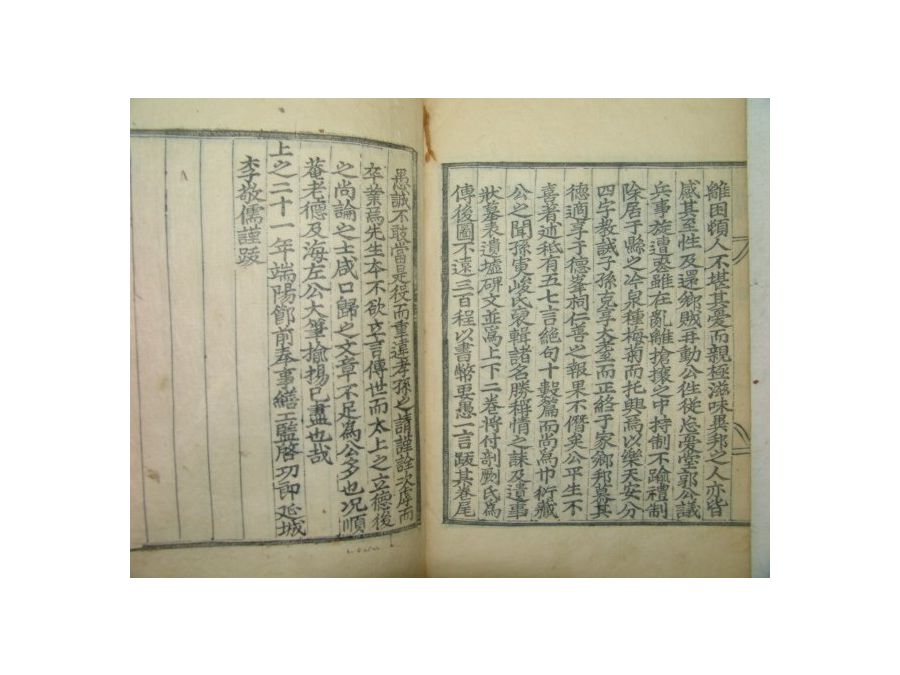 離困頓人不堪其憂而親極滋味異邦之人亦皆
感其至性及還鄉賊再動公往從忘憂堂郭公議
兵事旋遭喪雖在亂離搶攘之中持制不踰禮制
除居于縣之冷泉種梅菊而托興焉以樂天安分
四字教誡子孫克享大耋而正終于家鄉邦慕其
德適享于德峯祠仁善之報果不僭矣公平生不
喜著述秪有五七言絶句十數篇而尚爲巾衍藏
公之聞孫東峻氏裒輯諸名勝稱情之誄及遺事
狀墓表遺墟碑文並爲上下二卷將付剞劂氏爲
傳後圖不遠三百程以書幣要愚一言跋其卷尾
愚誠不敢當是役而重違孝孫之請謹詮次序而
卒業焉先生本不欲立言傳世而太上之立德後
之尚論之士咸口歸之文章不足爲公多也况順
菴老德及海左公大筆揄揚已盡也哉
上之二十一年端陽節前奉事繕工監啓功郎延城
李敬儒謹跋